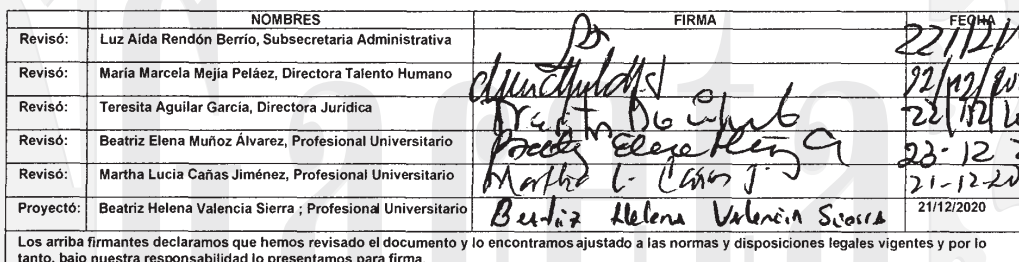 NOMBRES FIRMA FECHA
Revisó: Luz Aída Rendón Berrío, Subsecretaria Administrativa
Revisó: María Marcela Mejía Peláez, Directora Talento Humano
Revisó: Teresita Aguilar García, Directora Jurídica
Revisó: Beatriz Elena Muñoz Álvarez, Profesional Universitario 23-12
Revisó: Martha Lucia Cañas Jiménez, Profesional Universitario Martha L. Cañas J. 21-12-20
Proyectó: Beatriz Helena Valencia Sierra ; Profesional Universitario Beatriz Helena Valencia Sierra 21/12/2020
Los arriba firmantes declaramos que hemos revisado el documento y lo encontramos ajustado a las normas y disposiciones legales vigentes y por lo
tanto, bajo nuestra responsabilidad lo presentamos para firma